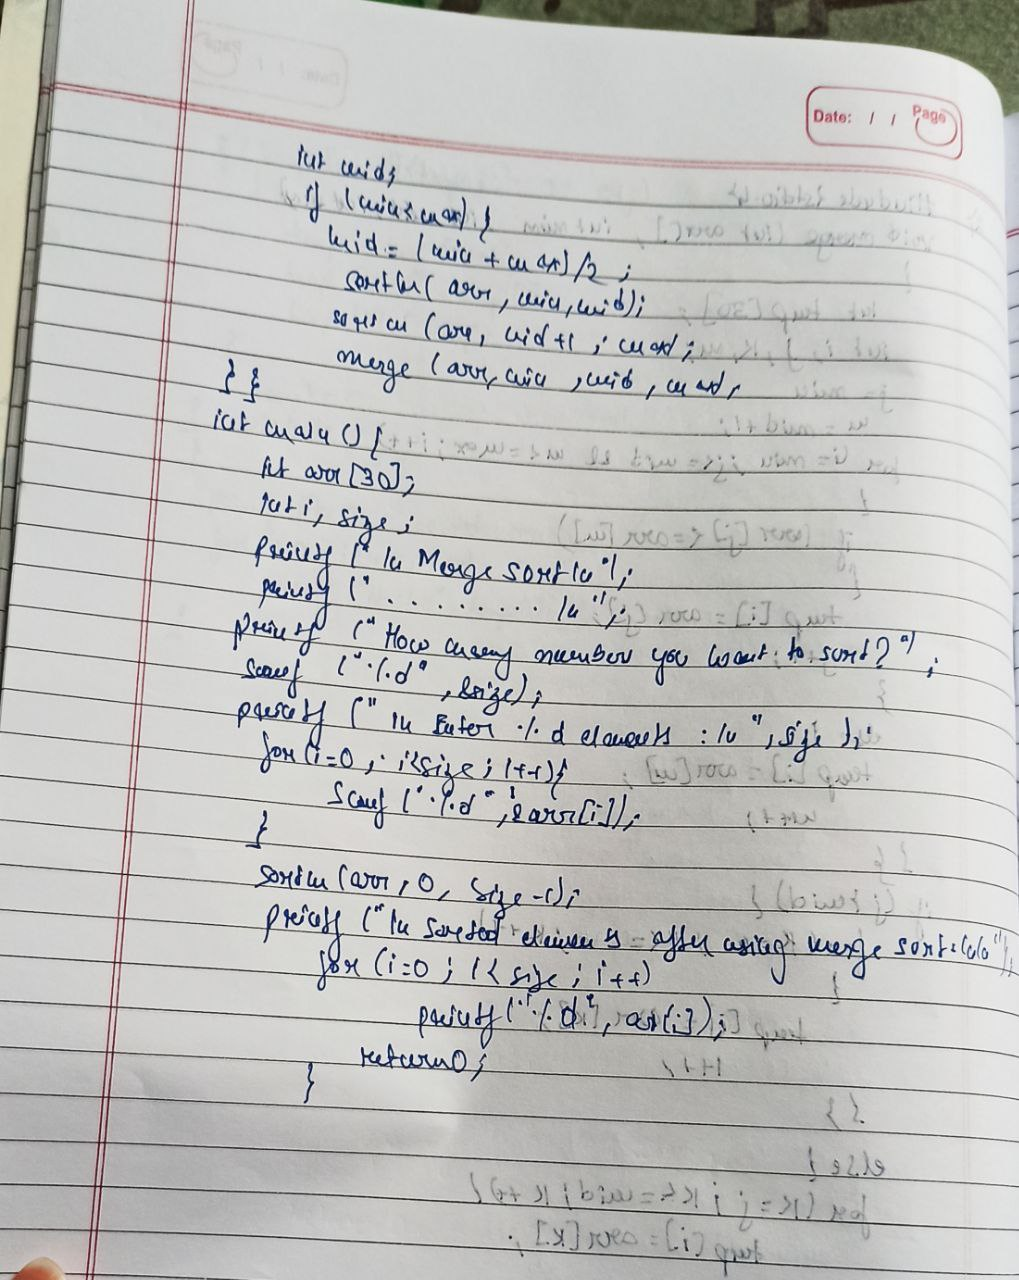 Date: / / Page
int mid;
if (min<max) {
mid = (min + max)/2 ;
sortm( arr, min, mid);
sortm (arr, mid+1 , max ;
merge (arr, min , mid , max ,
} }
int main () {
int arr [30];
int i, size ;
printf (" \n Merge sort \n ");
printf (" . . . . . . . . . \n ");
printf (" How many number you want to sort? ") ;
scanf ("%d" , &size) ;
printf (" \n Enter %d elements : \n ", size );
for (i=0 ; i<size ; i++) {
scanf ("%d" , &arr[i]);
}
sortm (arr, 0, size-1);
printf ("\n Sorted elements after using merge sort: \n\n");
for (i=0 ; i< size ; i++)
printf ("%d", arr[i]);
return 0;
}